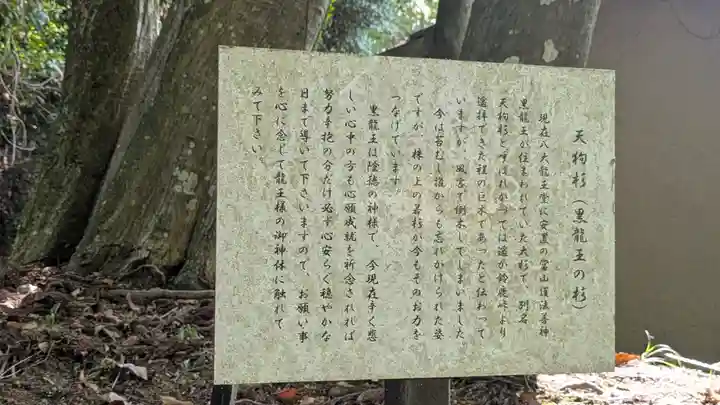 天狗杉(黒龍王の杉)
現在八大龍王堂に安置の当山護法善神
黒龍王が住まわれていた大杉で、別名
天狗杉と呼ばれかつては遥か鈴鹿峠より
遥拝できた程の巨木であったと伝わって
いますが、風害で倒木してしまいました。
今は苔むし誰からも忘れかけられた姿
ですが、株の上の若杉が今もそのお力を
つなげています。
黒龍王は陰徳の神様で、今現在辛く悲
しい心中の方も心願成就を祈念されれば
努力辛抱の分だけ必ず心安らぐ穏やかな
日まで導いて下さいますので、お願い事
を心に念じて龍王様の御神体に触れて
みて下さい。